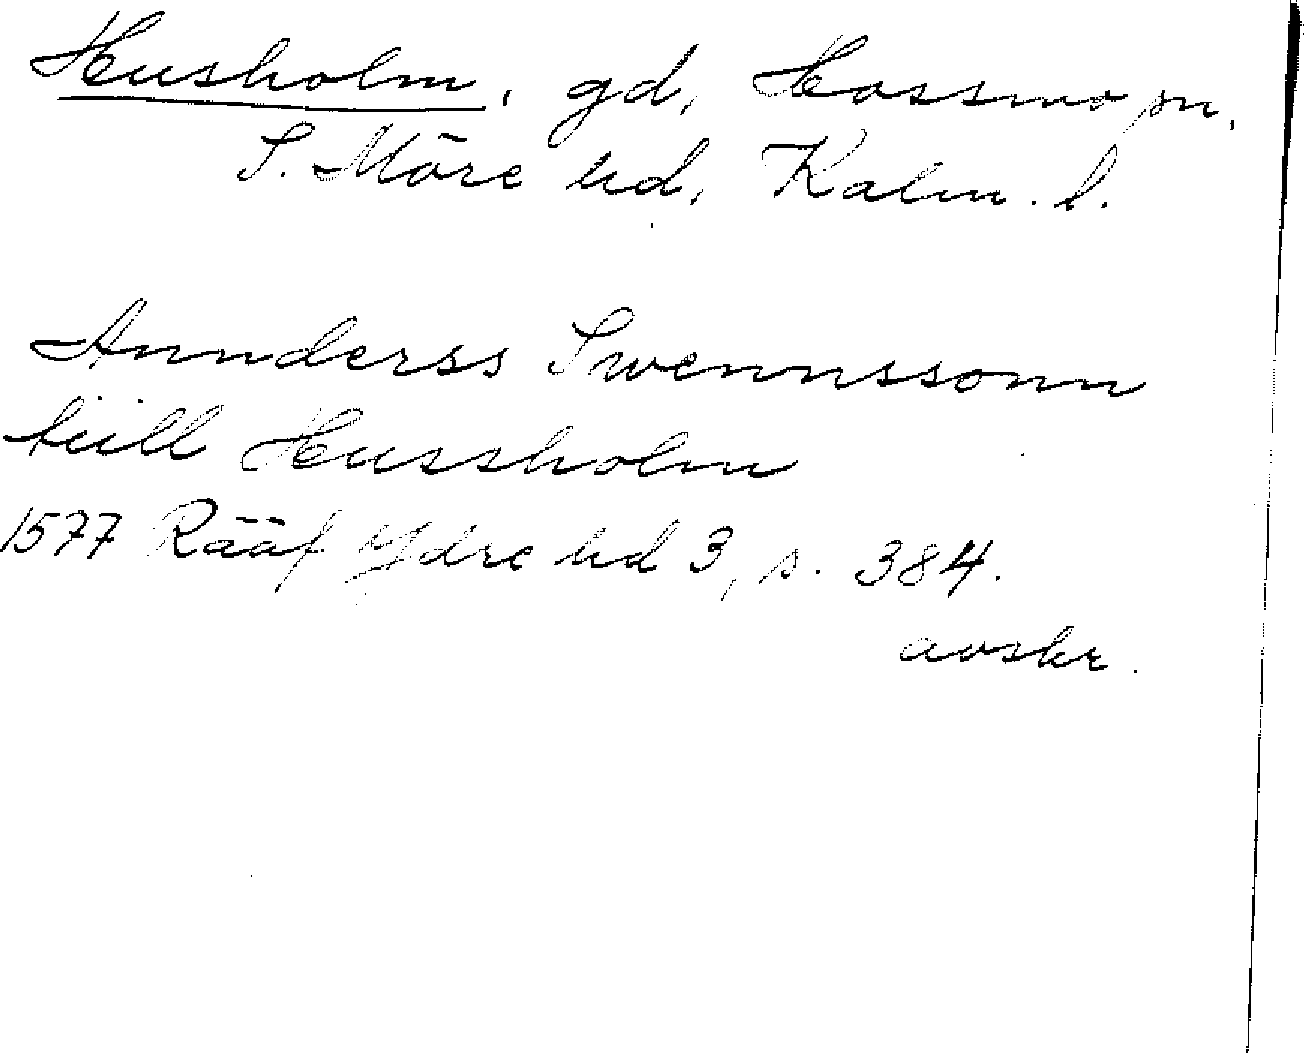 Husholm, gd, Hossmo sn,
S. Möre hd, Kalm. l.
Annderss Swennssonn
tüll Hussholm
1577 Rääf Ydre hd 3, s. 384.
avskr.